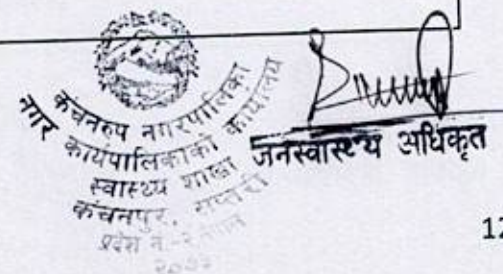 कंचनरुप नगरपालिका
नगर कार्यपालिकाको कार्यालय
स्वास्थ्य शाखा
कंचनपुर, सप्तरी
प्रदेश नं.-२, नेपाल
जनस्वास्थ्य अधिकृत
12